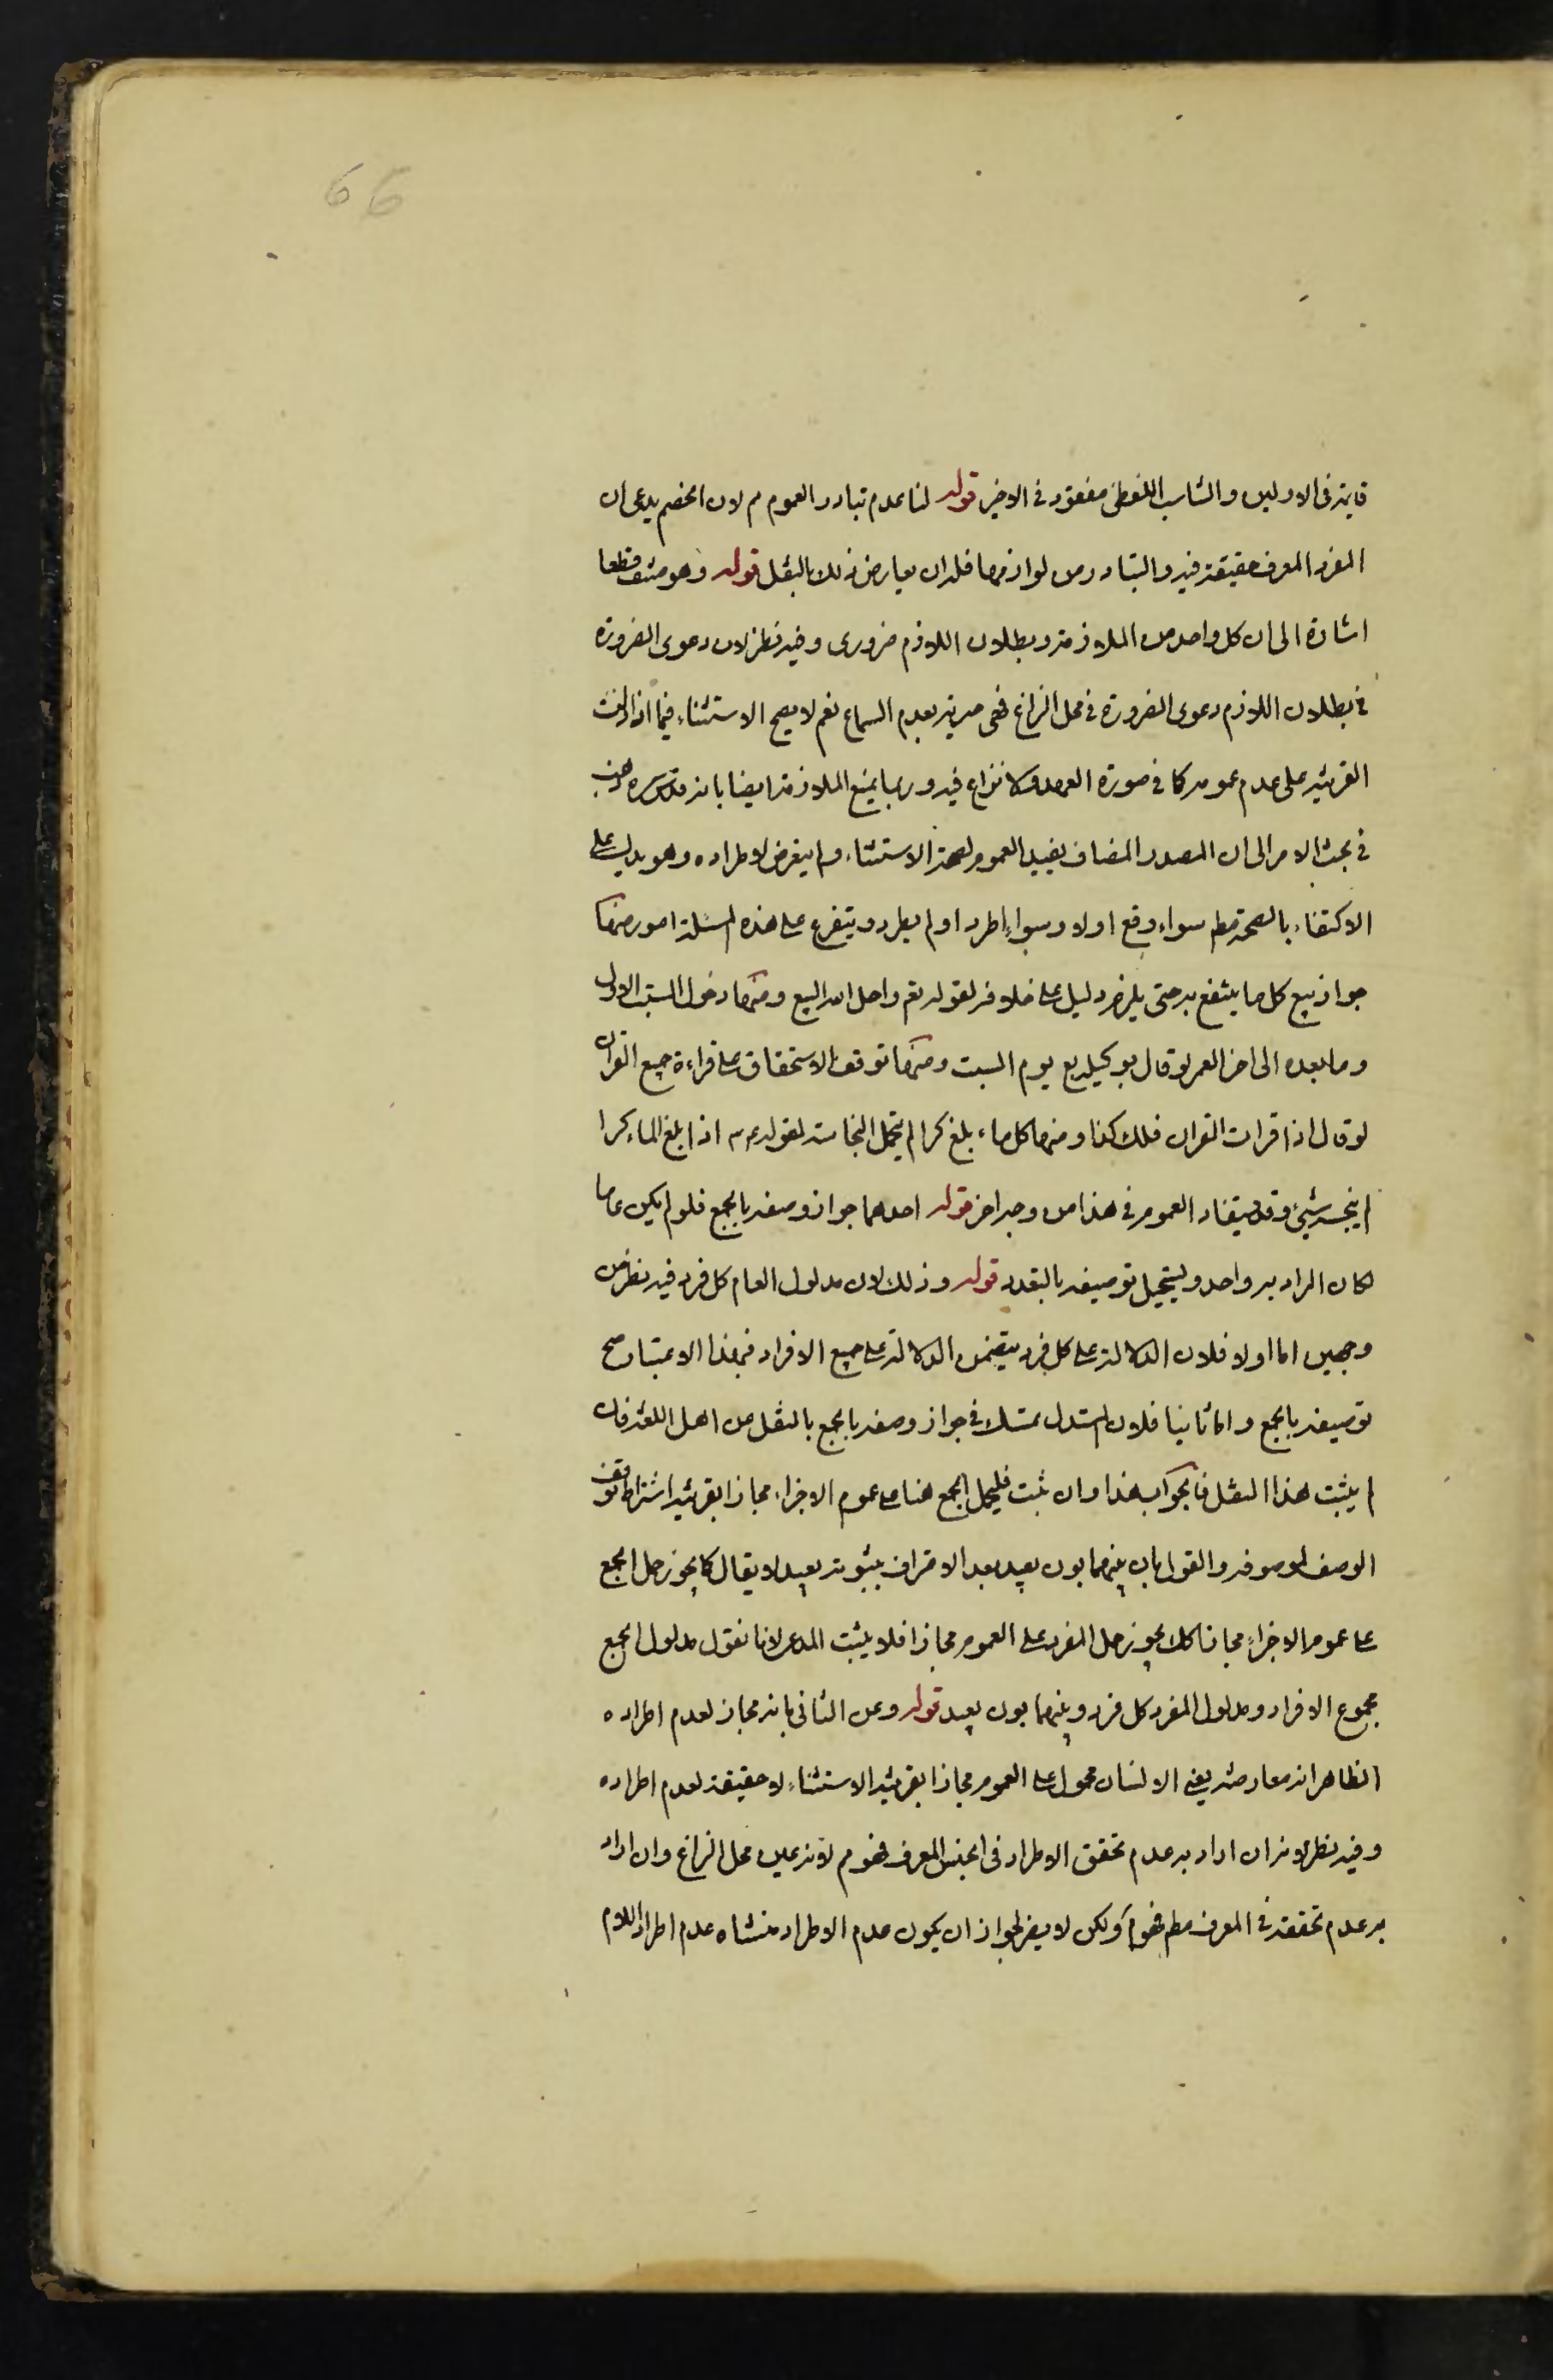 66
فانه في الاولين والتناسب اللفظي مفقود في الاخير قوله لنا عدم تبادر العموم م لان الخصم يدعى ان
المفرد المعرف حقيقة فيه والتبادر من لوازمها فله ان يعارض ذلك بالنقل قوله وهو منتف قطعا
اشارة الى ان كل واحد من الملازمة وبطلان اللازم ضرورى وفيه نظر لان دعوى الضرورة
في بطلان اللازم دعوى الضرورة في محل النزاع فهى حرية بعدم السماع نعم لا يصح الاستثناء فيما اذا دلت
القرينه على عدم عمومه كما في صورة العهد ولا نزاع فيه وربما يمنع الملازمة ايضا بانه قدس سره ذهب
في بحث الامر الى ان المصدر المضاف يفيد العموم لصحة الاستثناء ولم يتعرض لاطراده وهو يدل على
الاكتفاء بالصحة مطم سواء وقع اولا وسواء اطرد او لم يطرد ويتفرع على هذه المسئلة امور منها
جواز بيع كل ما ينتفع به حتى يلزم دليل على خلافه لقوله تعم واحل الله البيع ومنها دخول السبت الاول
وما بعده الى اخر العمر لو قال بوكيله بع يوم السبت ومنها توقف الاستحقاق على قراءة جميع القران
لو قال اذا قرات القران فلك كذا ومنها كل ماء بلغ كرا لم يحمل النجاسة لقوله عم اذا بلغ الماء كرا
لم ينجسه شئ وقد يستفاد العموم في هذا من وجه اخر قوله احدهما جواز وصفه بالجمع فلو لم يكن عاما
لكان المراد به واحد ويستحيل توصيفه بالتعدد قوله وذلك لان مدلول العام كل فرد فيه نظر من
وجهين اما اولا فلان الدلالة على كل فرد يتضمن الدلالة على جميع الافراد فبهذا الاعتبار صح
توصيفه بالجمع واما ثانيا فلان المستدل تمسك في جواز وصفه بالجمع بالنقل من اهل اللغة فان
لم يثبت هذا النقل فالجواب هذا وان ثبت فليحمل الجمع هنا على عموم الاجزاء مجازا بقرينه اشتراط توقف
الوصف لموصوفه والقول بان بينهما بون بعيد بعد الاعتراف بثبوته بعيد لا يقال كما يجوز حمل الجمع
على عموم الاجزاء مجازا كك يجوز حمل المفرد على العموم مجازا فلا يثبت المدعى لانا نقول مدلول الجمع
مجموع الافراد ومدلول المفرد كل فرد وبينهما بون بعيد قوله وعن الثانى بانه مجاز لعدم اطراده
الظاهر انه معارضة يعنى الانسان محمول على العموم مجازا بقرينه الاستثناء لا حقيقة لعدم اطراده
وفيه نظر لانه ان اراد به عدم تحقق الاطراد في الجنس المعرف فهو م لانه عين محل النزاع وان اراد
به عدم تحققه في المعرف مطم فهو م ولكن لا يضر لجواز ان يكون عدم الاطراد منشاه عدم اطراد اللام